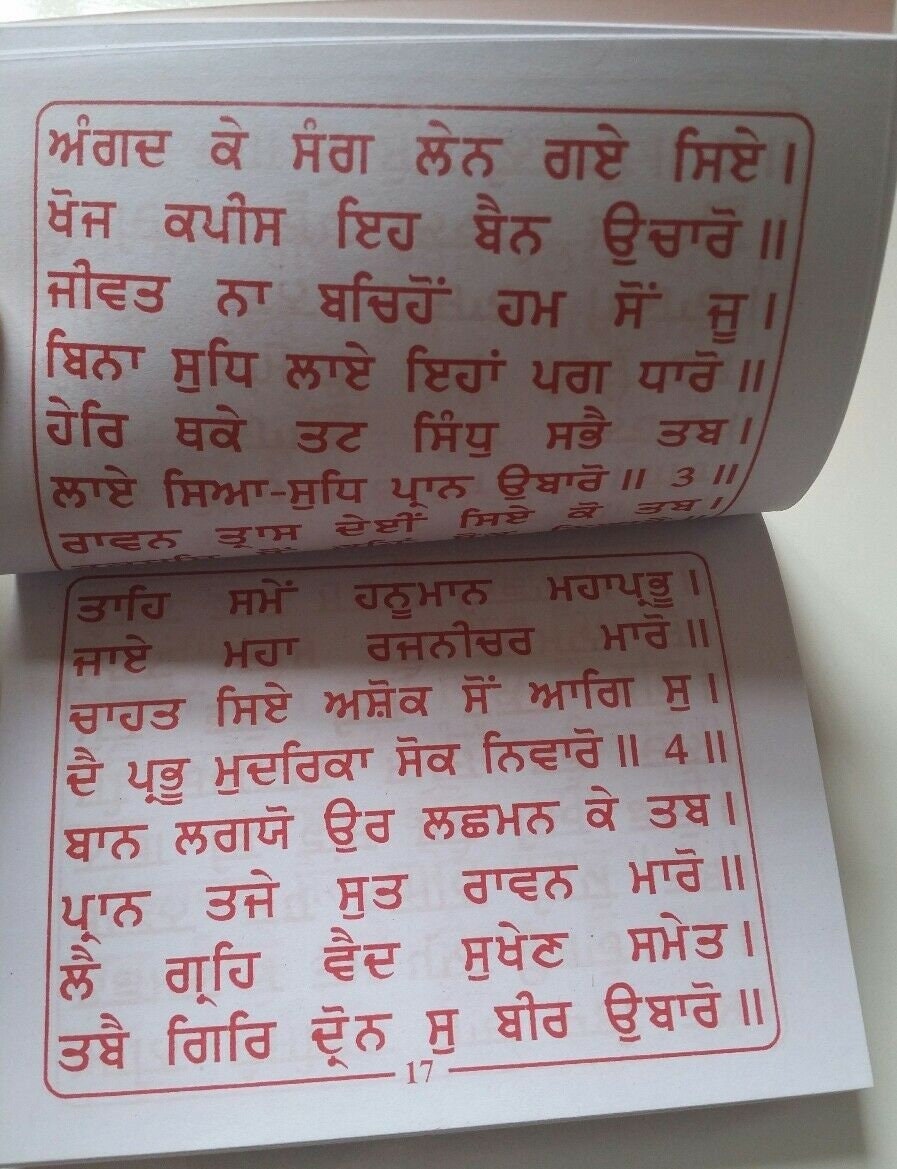 ਅੰਗਦ ਕੇ ਸੰਗ ਲੇਨ ਗਏ ਸਿਏ ।
ਖੋਜ ਕਪੀਸ ਇਹ ਬੈਨ ਉਚਾਰੋ ॥
ਜੀਵਤ ਨਾ ਬਚਿਹੌਂ ਹਮ ਸੋਂ ਜੂ ।
ਬਿਨਾ ਸੁਧਿ ਲਾਏ ਇਹਾਂ ਪਗ ਧਾਰੋ ॥
ਹੇਰਿ ਥਕੇ ਤਟ ਸਿੰਧੁ ਸਭੈ ਤਬ ।
ਲਾਏ ਸਿਆ-ਸੁਧਿ ਪ੍ਰਾਨ ਉਬਾਰੋ ॥ 3 ॥
ਰਾਵਨ ਤ੍ਰਾਸ ਦੇਈਂ ਸਿਏ ਕੋ ਤਬ ।
ਤਾਹਿ ਸਮੇਂ ਹਨੂਮਾਨ ਮਹਾਪ੍ਰਭੂ ।
ਜਾਏ ਮਹਾ ਰਜਨੀਚਰ ਮਾਰੋ ॥
ਚਾਹਤ ਸਿਏ ਅਸ਼ੋਕ ਸੋਂ ਆਗਿ ਸੁ ।
ਦੈ ਪ੍ਰਭੂ ਮੁਦਰਿਕਾ ਸੋਕ ਨਿਵਾਰੋ ॥ 4 ॥
ਬਾਨ ਲਗਯੋ ਉਰ ਲਛਮਨ ਕੇ ਤਬ ।
ਪ੍ਰਾਨ ਤਜੇ ਸੁਤ ਰਾਵਨ ਮਾਰੋ ॥
ਲੈ ਗ੍ਰਹਿ ਵੈਦ ਸੁਖੇਣ ਸਮੇਤ ।
ਤਬੈ ਗਿਰਿ ਦ੍ਰੋਨ ਸੁ ਬੀਰ ਉਬਾਰੋ ॥
17